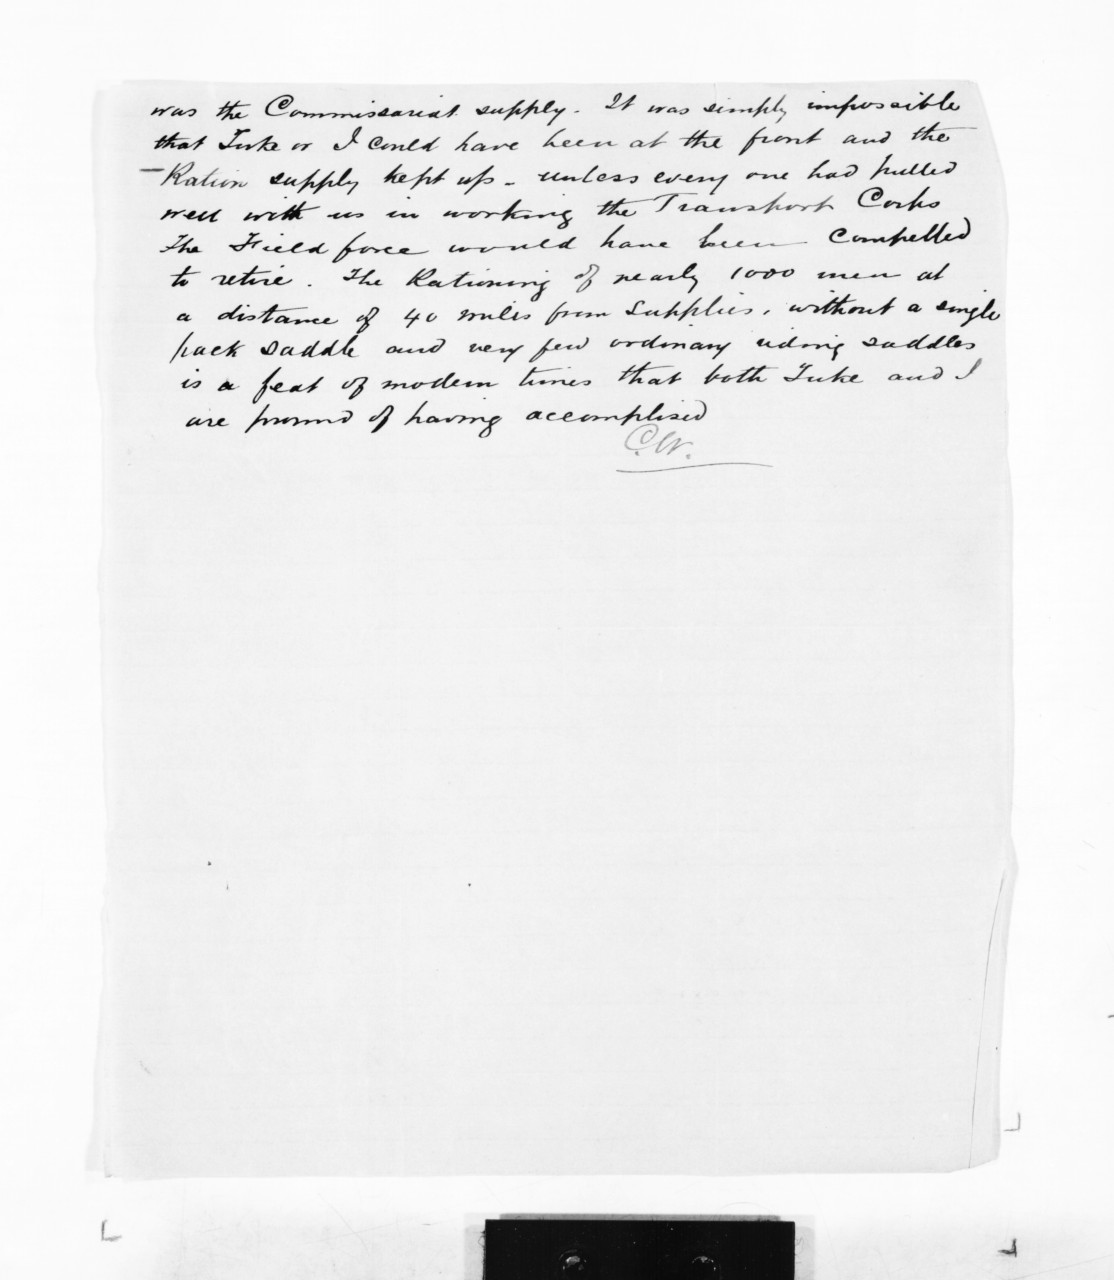 was the Commissariat supply. It was simply impossible
that Tuke or I could have been at the front and the
- Ration supply kept up - unless every one had pulled
well with us in working the Transport Corps
The Field force would have been compelled
to retire. The Rationing of nearly 1000 men at
a distance of 40 miles from supplies, without a single
pack saddle and very few ordinary riding saddles
is a feat of modern times that both Tuke and I
are proud of having accomplised
C.W.